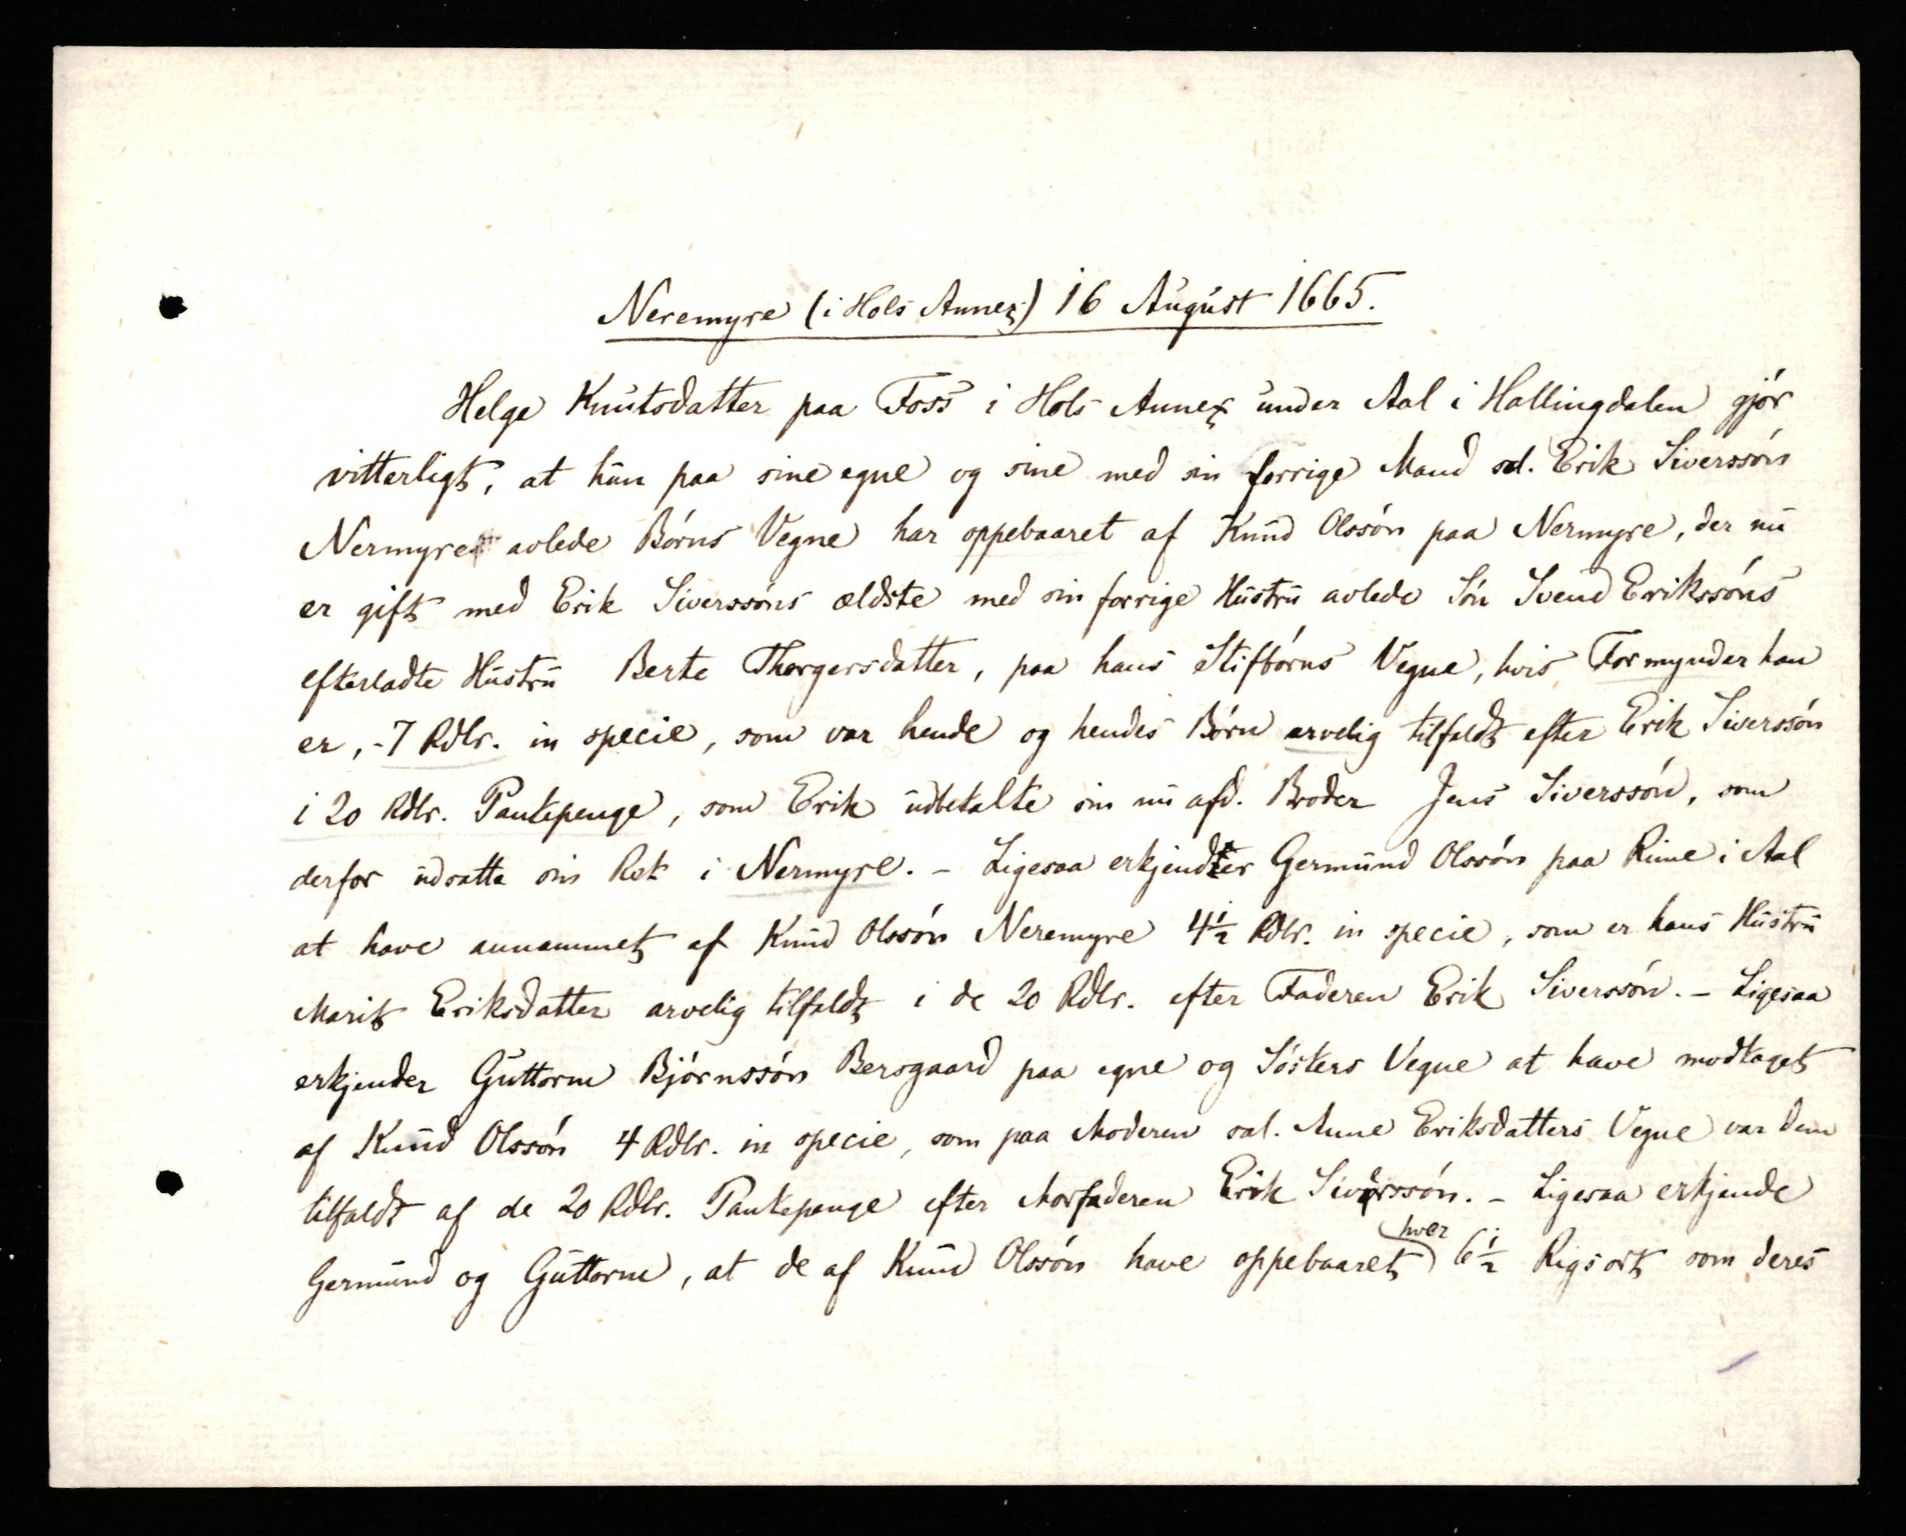 Neremyre (i Hols Annex) 16 August 1665.
Helge Knutsdatter paa Foss i Hols Annex under Aal i Hallingdalen gjör
vitterligt, at hun paa sine egne og sine med sin forrige Mand sal. Erik Siverssön
Nermyre avlede Börns Vegne har oppebaaret af Knud Olssön paa Nermyre, der nu
er gift med Erik Siverssöns ældste med sin forrige Hustru avlede Sön Svend Erikssöns
efterladte Hustru Berte Thorgersdatter, paa hans Stifbörns Vegne, hvis Formynder han
er, - 7 Rdlr. in specie, som var hende og hendes Börn arvelig tilfaldt efter Erik Siverssön
i 20 Rdlr. Pantepenge, som Erik udbetalte sin nu afd. Broder Jens Siverssön, som
derfor udsatte sin Ret i Nermyre. - Ligesaa erkjender Germund Olssön paa Rime i Aal
at have annammet af Knud Olssön Neremyre 4½ Rdlr. in specie, som er hans Hustru
Marit Eriksdatter arvelig tilfaldt i de 20 Rdlr. efter Faderen Erik Siverssön. - Ligesaa
erkjender Guttorm Björnssön Bersgaard paa egne og Sösters Vegne at have modtaget
af Knud Olssön 4 Rdlr. in specie, som paa Moderen sal. Anne Eriksdatters Vegne var dem
tilfaldt af de 20 Rdlr. Pantepenge efter Morfaderen Erik Siverssön. - Ligesaa erkjende
Germund og Guttorm, at de af Knud Olssön have oppebaaret hver 6½ Rigsort som deres